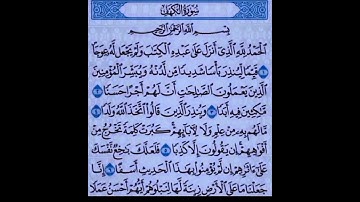 سورة الكهف
بسم الله الرحمن الرحيم
الحمد لله الذي أنزل على عبده الكتب ولم يجعل له عوجا
قيما لينذر بأسا شديدا من لدنه ويبشر المؤمنين
الذين يعملون الصلحت أن لهم أجرا حسنا
مكثين فيه أبدا وينذر الذين قالوا اتخذ الله ولدا
ما لهم به من علم ولا لآبائهم كبرت كلمة تخرج من
أفوههم إن يقولون إلا كذبا فلعلك بخع نفسك
على ءاثرهم إن لم يؤمنوا بهذا الحديث أسفا إنا
جعلنا ما على الأرض زينة لها لنبلوهم أيهم أحسن عملا